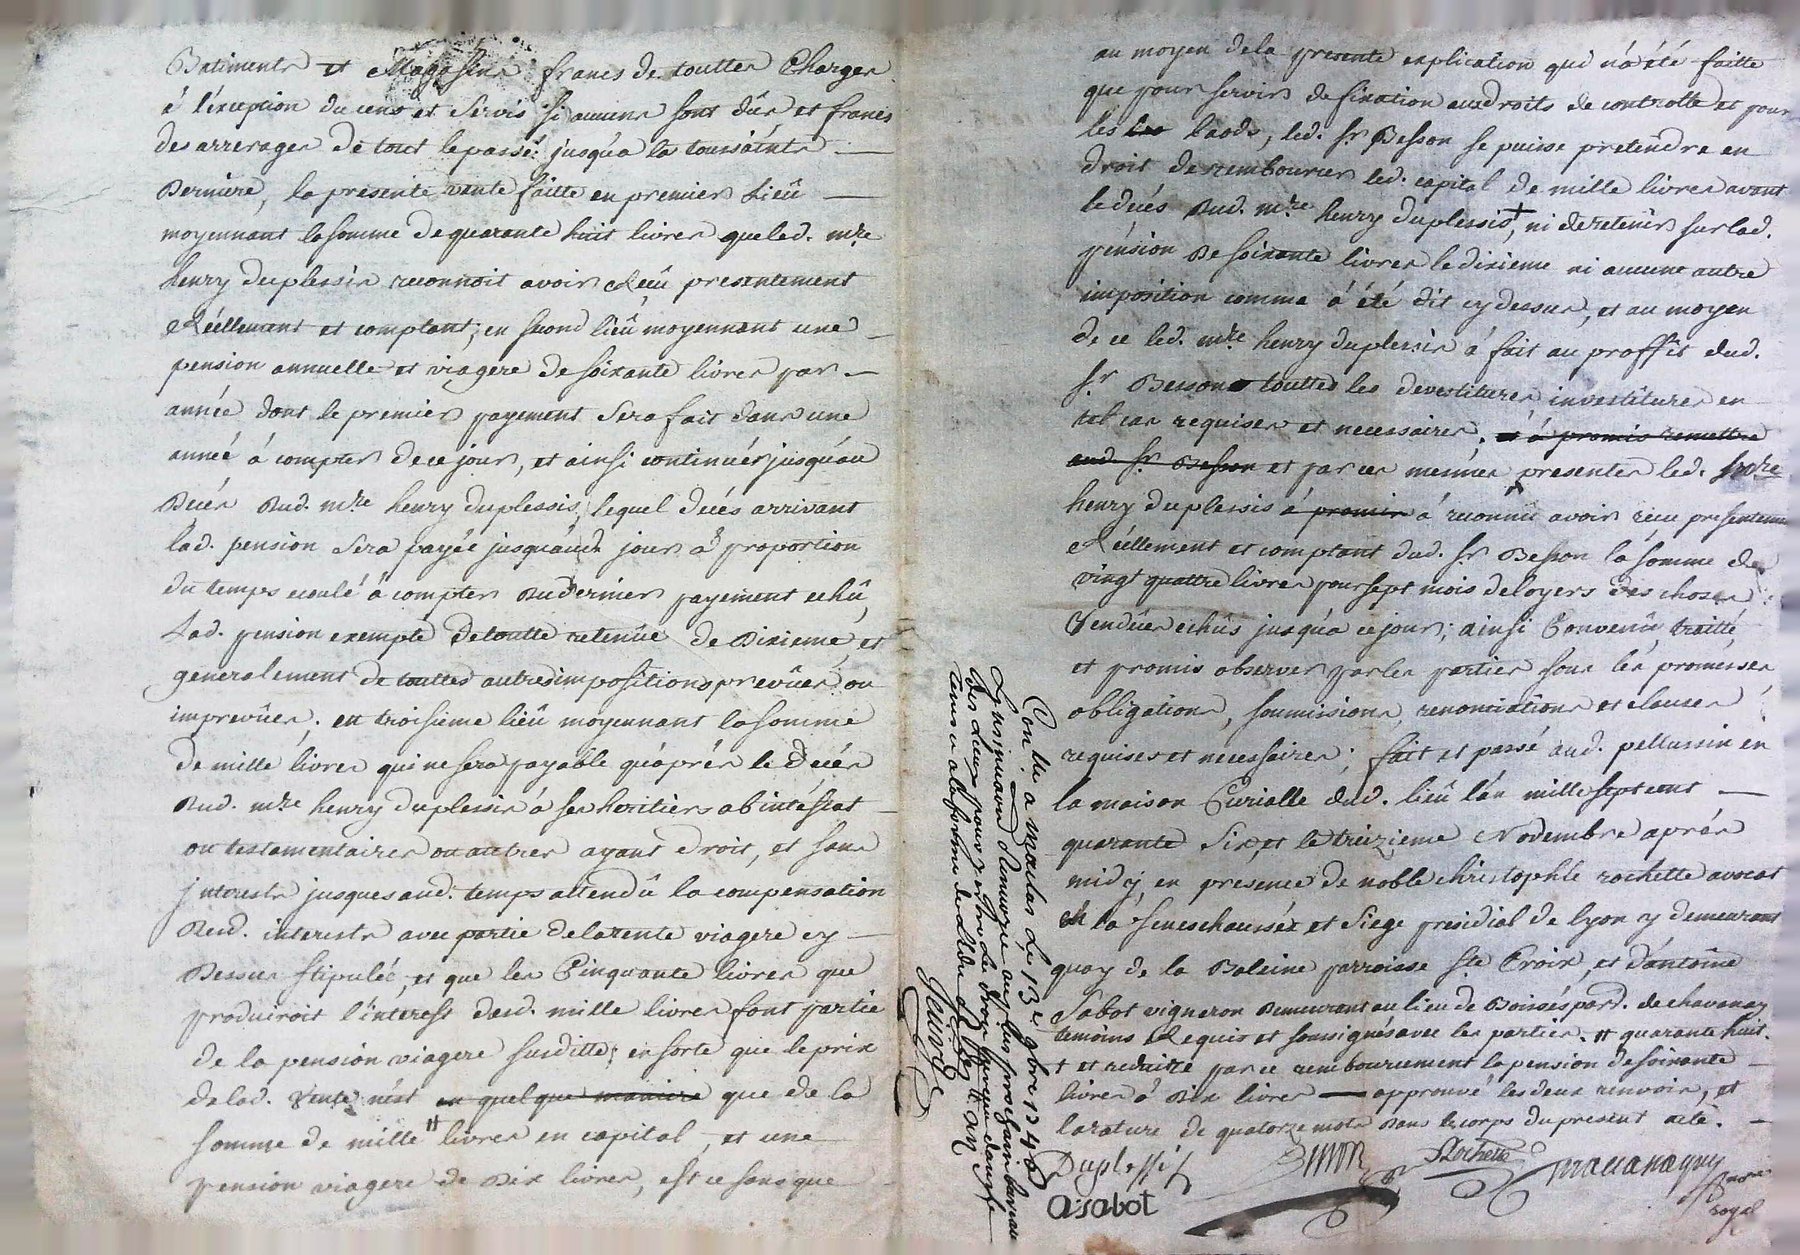 Batiments et Magasins francs de touttes Charges
á l'exception du cens et Servis si aucuns sont dûs et francs
des arrerages de tout le passé jusqu'a la toussaints
Derniere, la présente vente faitte en premier Lieû
moyennant la somme de quarante huit livres que led. mre
henry duplessis reconnoit avoir Reçû presentement
Réellement et comptant; en second lieû moyennant une
pension annuelle et viagere de soixante livres par
année dont le premier payement Sera fait dans une
année á compter de ce jour, et ainsi continuér jusqu'au
Decés Dud. mre henry duplessis, lequel decés arrivant
lad. pension Sera payée jusqu'aud. jour á proportion
du temps ecoulé á compter Du dernier payement echû,
Lad. pension exempte de toutte retenüe de Dixieme, et
generalement de touttes autres impositions prevûes ou
imprevûes. en troisieme lieû moyennant la somme
de mille livres qui ne sera payable qu'áprés le Decés
Dud. mre henry duplessis á ses heritiers ab intéstat
ou testamentaires ou autres ayant Droit, et sans
jnterests jusques aud. temps attendû la compensation
Desd. interests avec partie de la rente viagere cy
Dessus stipulée, et que les Cinquante livres que
produiroit l'interest desd. mille livres font partie
de la pension viagere susditte; en sorte que le prix
de lad. vente n'est en quelque maniere que de la
somme de mille # livres en capital, et une
pension viagere de Dix livres, est ce sans que
au moyen de la presente explication qui n'á été faitte
que pour servir de fixation aux droits de controlle et pour
les laods, led. Sr Besson se puisse pretendre en
droit de rembourser led. capital de mille livres avant
le decés Dud. mre henry duplessis +, ni de retenir sur lad.
pension De soixante livres le dixieme ni aucune autre
imposition comme á été dit cy dessus, et au moyen
de ce led. mre henry duplessis á fait au proffit dud.
Sr Besson touttes les devestitures investitures en
tel cas requises et necessaires. et á promis remettre
aud. Sr Besson et par ces mêmes presentes led. mre
henry duplessis á promis á reconnû avoir recu presentement
Réellement et comptant dud. Sr Besson la somme de
vingt quattre livres pour sept mois de loyers des choses
Vendües echûs jusqu'a ce jour; ainsi Convenû, traitté
et promis observer par les parties sous les promesses
obligations, soumissions, renonciations et clauses
requises et necessaires; fait et passé aud. pellussin en
la maison Curialle dud. lieû l'an mille sept cent
quarante Six, et le treizieme Novembre aprés
midy, en presence de noble christophle rochette avocat
en la seneschaussée et Siege presidial de lyon y demeurant
quay de la Baleine parroisse Ste Croix, et d'antoine
Sabot vigneron Demeurant au lieu de Boissés parr. de chavanay
temoins Requis et soussignés avec les parties. # quarante huit.
+ et reduitte par ce remboursement la pension de soixante
livres á Dix livres — approuvé les deux renvois, et
la rature de quatorze mots Dans le corps du present acte.
Duplessis
Rochette
a sabot
royal
Conlle a maclas Le 13e 9bre 1746
L'insinuation Renvoyée au plus prochain bureau
des Lieux pour y estre Le droit perçu d'aujle